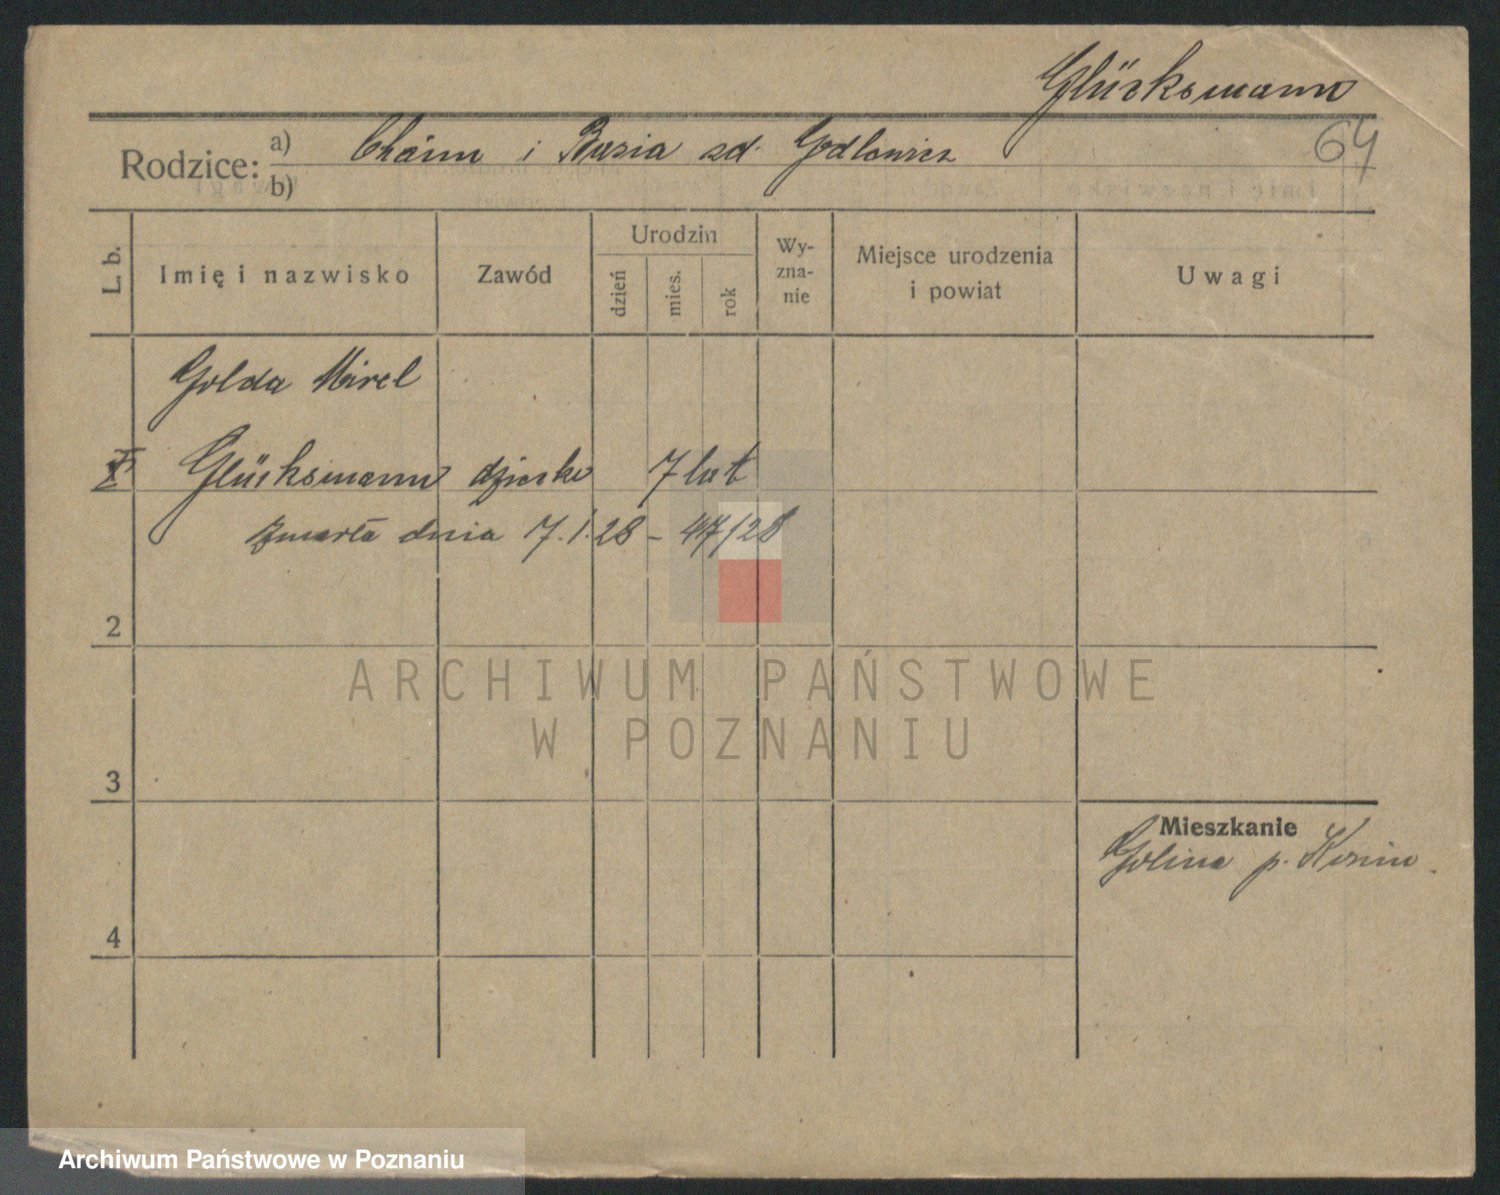 Glücksmann
64
Rodzice: a) Chaim i Basia zd. Godlewicz
b)
L. b.
Imię i nazwisko
Zawód
Urodzin
dzień
mies.
rok
Wy-
zna-
nie
Miejsce urodzenia
i powiat
Uwagi
Golda Mirel
Glücksmann dziecko 7 lat
zmarła dnia 7.1.28 - 47/28
2
3
4
Mieszkanie
Golina p. Konin.
ARCHIWUM PAŃSTWOWE
W POZNANIU
Archiwum Państwowe w Poznaniu